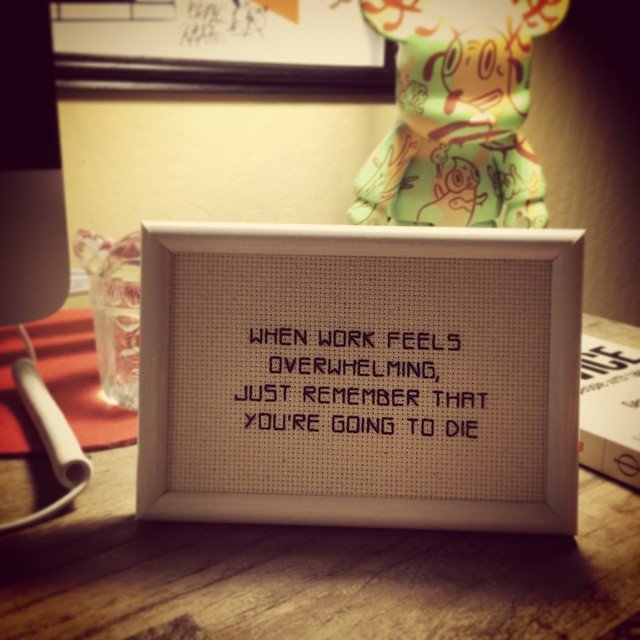 WHEN WORK FEELS
OVERWHELMING,
JUST REMEMBER THAT
YOU'RE GOING TO DIE